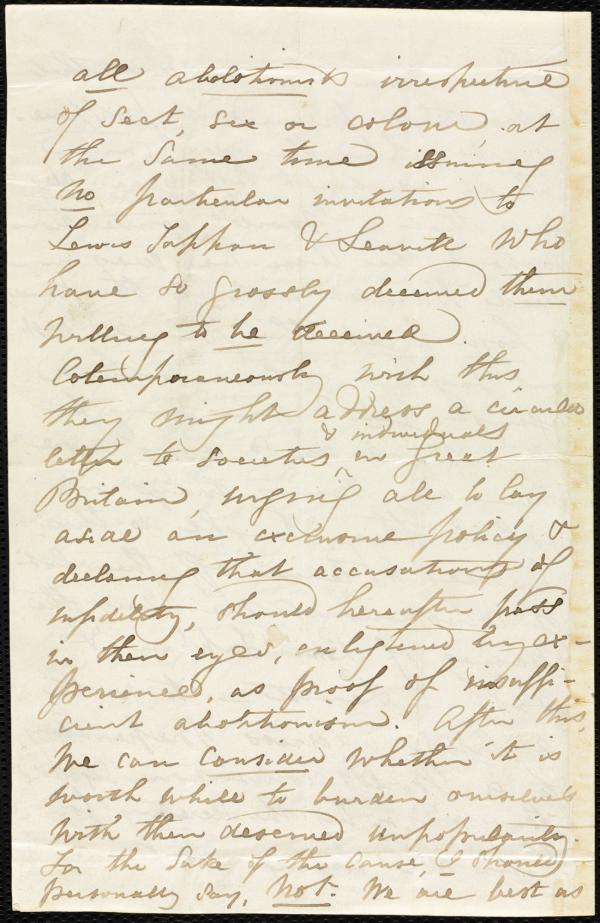 all abolitionists irrespective
of Sect, sex or colour, at
the same time issuing
no particular invitations to
Lewis Tappan & Leavitt who
have so grossly deceived them
willing to be deceived.
Cotemporaneously with this
they might address a circular
letter to societies & individuals in Great
Britain, urging all to lay
aside an exclusive policy &
declaring that accusations of
infidelity, should hereafter pass
in their eyes, enlightened by ex-
perience, as proof of insuffi-
cient abolitionism. After this,
we can consider whether it is
worth while to burden ourselves
with their deserved unpopularity.
For the sake of the cause, I should
personally say, Not. We are best as